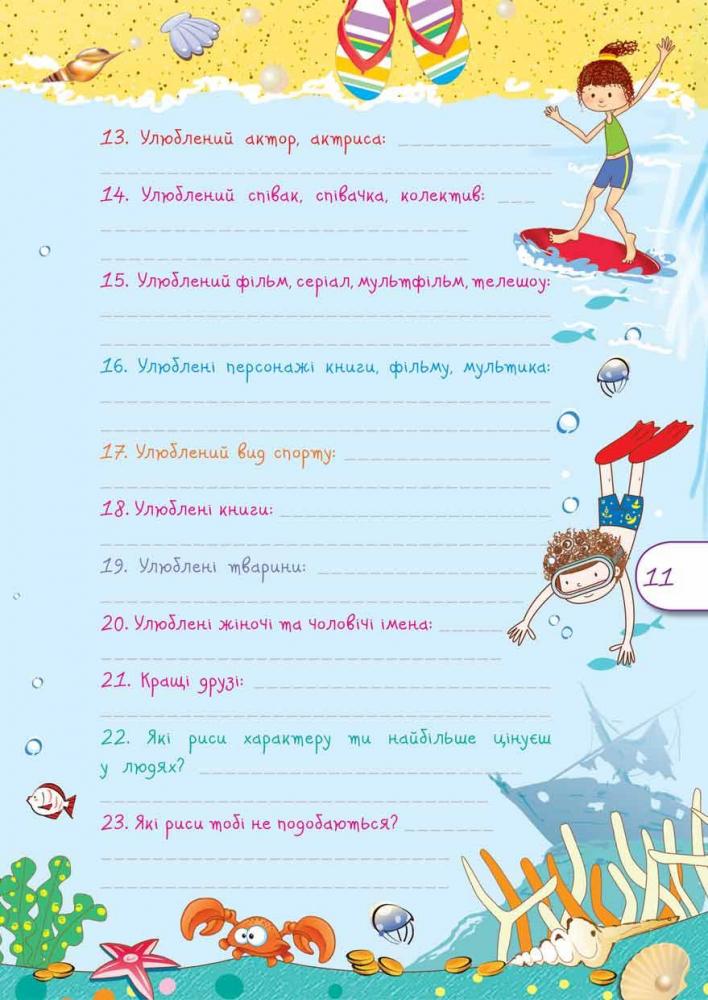 13. Улюблений актор, актриса:
14. Улюблений співак, співачка, колектив:
15. Улюблений фільм, серіал, мультфільм, телешоу:
16. Улюблені персонажі книги, фільму, мультика:
17. Улюблений вид спорту:
18. Улюблені книги:
19. Улюблені тварини:
11
20. Улюблені жіночі та чоловічі імена:
21. Кращі друзі:
22. Які риси характеру ти найбільше цінуєш
у людях?
23. Які риси тобі не подобаються?